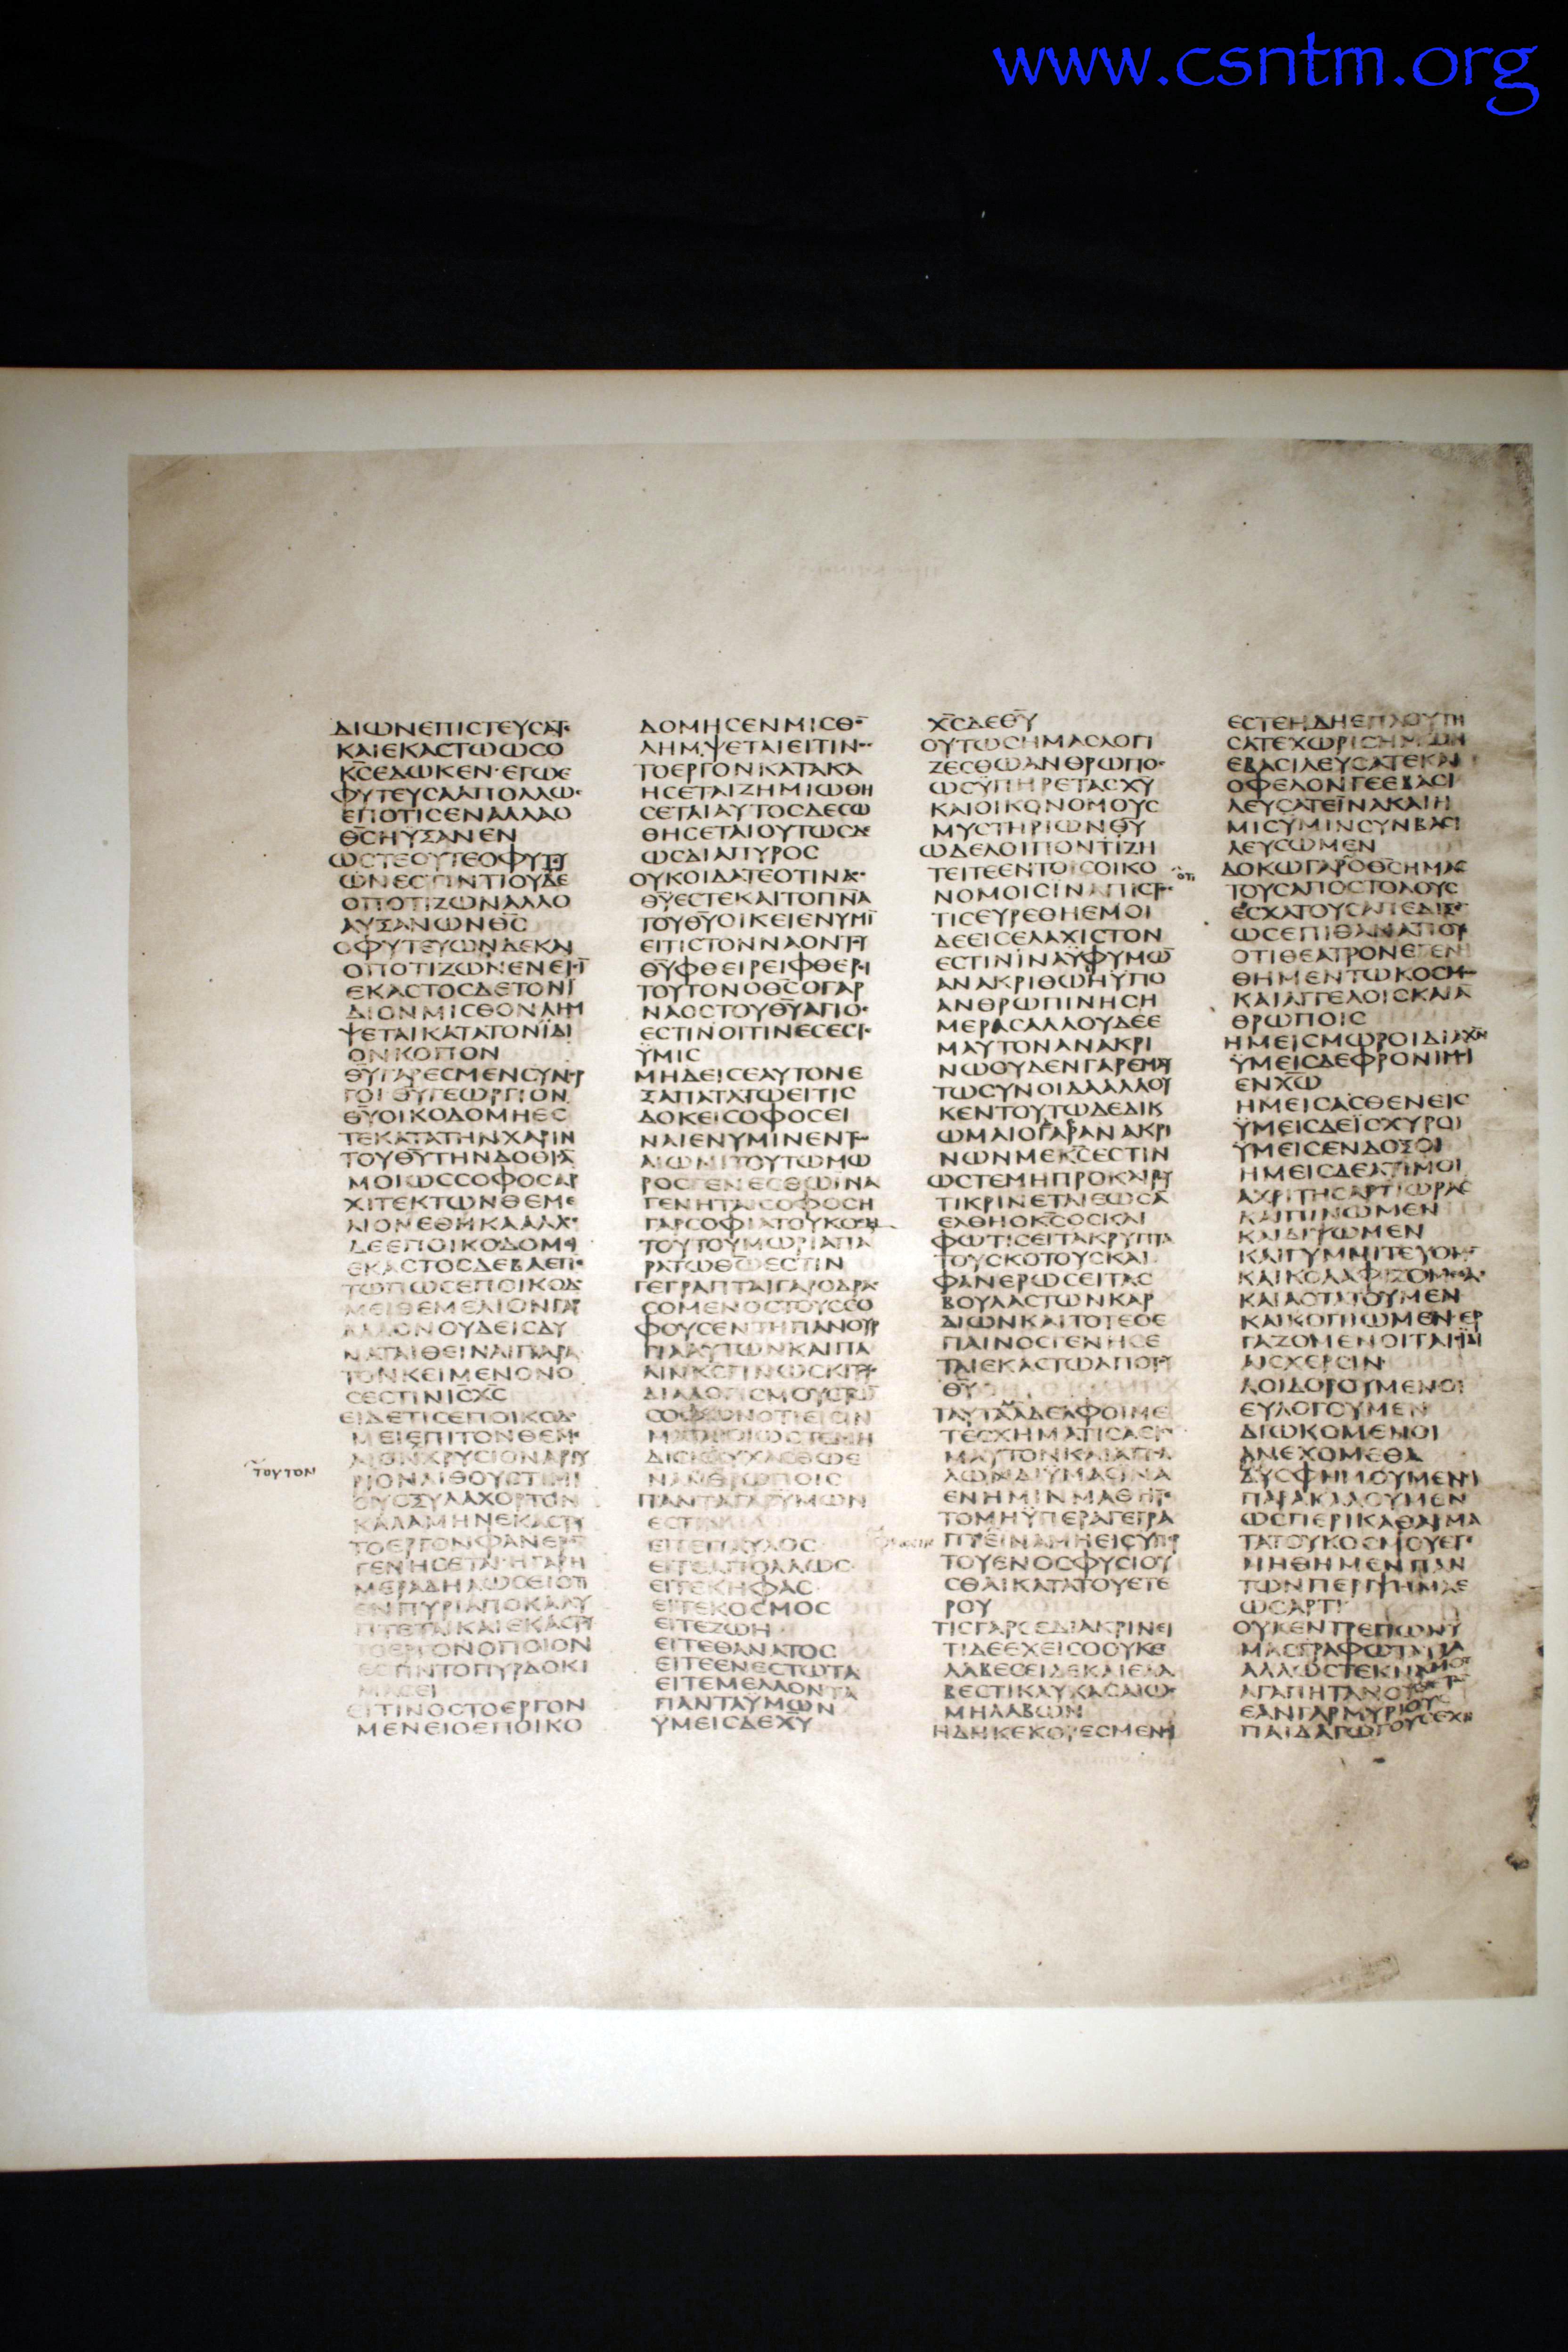 www.csntm.org
ΔΙΩΝΕΠΙCΤΕΥCΑΤ
ΚΑΙΕΚΑCΤΩΩCΟ
Κ̅C̅ΕΔΩΚΕΝ·ΕΓΩΕ
ΦΥΤΕΥCΑΑΠΟΛΛΩ·
ΕΠΟΤΙCΕΝΑΛΛΑΟ
Θ̅C̅ΗΥΞΑΝΕΝ
ΩCΤΕΟΥΤΕΟΦΥΤΕΥ
ΩΝΕCΤΙΝΤΙΟΥΔΕ
ΟΠΟΤΙΖΩΝΑΛΛΟ
ΑΥΞΑΝΩΝΘ̅C̅
ΟΦΥΤΕΥΩΝΔΕΚΑΙ
ΟΠΟΤΙΖΩΝΕΝΕΙCΙ̅
ΕΚΑCΤΟCΔΕΤΟΝΙ
ΔΙΟΝΜΙCΘΟΝΛΗΜ
ΨΕΤΑΙΚΑΤΑΤΟΝΪΔΙ
ΟΝΚΟΠΟΝ
Θ̅Υ̅ΓΑΡΕCΜΕΝCΥΝΕΡ
ΓΟΙΘ̅Υ̅ΓΕΩΡΓΙΟΝ
Θ̅Υ̅ΟΙΚΟΔΟΜΗΕC
ΤΕΚΑΤΑΤΗΝΧΑΡΙΝ
ΤΟΥΘ̅Υ̅ΤΗΝΔΟΘΙCΑ̅
ΜΟΙΩCCΟΦΟCΑΡ
ΧΙΤΕΚΤΩΝΘΕΜΕ
ΛΙΟΝΕΘΗΚΑΑΛΛΟC
ΔΕΕΠΟΙΚΟΔΟΜΕΙ
ΕΚΑCΤΟCΔΕΒΛΕΠΕ
ΤΩΠΩCΕΠΟΙΚΟΔΟ
ΜΕΙΘΕΜΕΛΙΟΝΓΑΡ
ΑΛΛΟΝΟΥΔΕΙCΔΥ
ΝΑΤΑΙΘΕΙΝΑΙΠΑΡΑ
ΤΟΝΚΕΙΜΕΝΟΝΟ
CΕCΤΙΝΙ̅C̅Χ̅C̅
ΕΙΔΕΤΙCΕΠΟΙΚΟΔΟ
ΜΕΙΕΠΙΤΟΝΘΕΜΕ
τουτον
ΛΙΟΝΧΡΥCΙΟΝΑΡΓΥ
ΡΙΟΝΛΙΘΟΥCΤΙΜΙ
ΟΥCΞΥΛΑΧΟΡΤΟΝ
ΚΑΛΑΜΗΝΕΚΑCΤΟΥ
ΤΟΕΡΓΟΝΦΑΝΕΡΟ̅
ΓΕΝΗCΕΤΑΙΗΓΑΡΗ
ΜΕΡΑΔΗΛΩCΕΙΟΤΙ
ΕΝΠΥΡΙΑΠΟΚΑΛΥ
ΠΤΕΤΑΙΚΑΙΕΚΑCΤΟΥ
ΤΟΕΡΓΟΝΟΠΟΙΟΝ
ΕCΤΙΝΤΟΠΥΡΔΟΚΙ
ΜΑCΕΙ
ΕΙΤΙΝΟCΤΟΕΡΓΟΝ
ΜΕΝΕΙΟΕΠΟΙΚΟ
ΔΟΜΗCΕΝΜΙCΘΟ̅
ΛΗΜΨΕΤΑΙΕΙΤΙΝΟC
ΤΟΕΡΓΟΝΚΑΤΑΚΑ
ΗCΕΤΑΙΖΗΜΙΩΘΗ
CΕΤΑΙΑΥΤΟCΔΕCΩ
ΘΗCΕΤΑΙΟΥΤΩCΔΕ
ΩCΔΙΑΠΥΡΟC
ΟΥΚΟΙΔΑΤΕΟΤΙΝΑΟC
Θ̅Υ̅ΕCΤΕΚΑΙΤΟΠ̅Ν̅Α̅
ΤΟΥΘ̅Υ̅ΟΙΚΕΙΕΝΥΜΙ̅
ΕΙΤΙCΤΟΝΝΑΟΝΤΟΥ
Θ̅Υ̅ΦΘΕΙΡΕΙΦΘΕΡΕΙ
ΤΟΥΤΟΝΟΘ̅C̅ΟΓΑΡ
ΝΑΟCΤΟΥΘ̅Υ̅ΑΓΙΟC
ΕCΤΙΝΟΙΤΙΝΕCΕCΤΕ
ΫΜΙC
ΜΗΔΕΙCΕΑΥΤΟΝΕ
ΞΑΠΑΤΑΤΩΕΙΤΙC
ΔΟΚΕΙCΟΦΟCΕΙ
ΝΑΙΕΝΥΜΙΝΕΝΤΩ
ΑΙΩΝΙΤΟΥΤΩΜΩ
ΡΟCΓΕΝΕCΘΩΙΝΑ
ΓΕΝΗΤΑΙCΟΦΟCΗ
ΓΑΡCΟΦΙΑΤΟΥΚΟCΜΟΥ
ΤΟΥΤΟΥΜΩΡΙΑΠΑ
ΡΑΤΩΘ̅Ω̅ΕCΤΙΝ
ΓΕΓΡΑΠΤΑΙΓΑΡΟΔΡΑC
CΟΜΕΝΟCΤΟΥCCΟ
ΦΟΥCΕΝΤΗΠΑΝΟΥΡ
ΓΙΑΑΥΤΩΝΚΑΙΠΑ
ΛΙΝΚ̅C̅ΓΙΝΩCΚΙΤΟΥC
ΔΙΑΛΟΓΙCΜΟΥCΤΩ̅
CΟΦΩΝΟΤΙΕΙCΙΝ
ΜΑΤΑΙΟΙΩCΤΕΜΗ
ΔΙCΚΑΥΧΑCΘΩΕ
ΝΑΝΘΡΩΠΟΙC
ΠΑΝΤΑΓΑΡΫΜΩΝ
ΕCΤΙΝ
ΕΙΤΕΠΑΥΛΟC
ΕΙΤΕΑΠΟΛΛΩC
ΕΙΤΕΚΗΦΑC
ΕΙΤΕΚΟCΜΟC
ΕΙΤΕΖΩΗ
ΕΙΤΕΘΑΝΑΤΟC
ΕΙΤΕΕΝΕCΤΩΤΑ
ΕΙΤΕΜΕΛΛΟΝΤΑ
ΠΑΝΤΑΥΜΩΝ
ΫΜΕΙCΔΕΧ̅Υ̅
Χ̅C̅ΔΕΘ̅Υ̅
ΟΥΤΩCΗΜΑCΛΟΓΙ
ΖΕCΘΩΑΝΘΡΩΠΟC
ΩCΥΠΗΡΕΤΑCΧ̅Υ̅
ΚΑΙΟΙΚΟΝΟΜΟΥC
ΜΥCΤΗΡΙΩΝΘ̅Υ̅
ΩΔΕΛΟΙΠΟΝΤΙΖΗ
ΤΕΙΤΕΕΝΤΟΙCΟΙΚΟ
ΝΟΜΟΙCΙΝΑΠΙCΤΟC
ΤΙCΕΥΡΕΘΗΕΜΟΙ
ΔΕΕΙCΕΛΑΧΙCΤΟΝ
ΕCΤΙΝΙΝΑΫΦΥΜΩ̅
ΑΝΑΚΡΙΘΩΗΥΠΟ
ΑΝΘΡΩΠΙΝΗCΗ
ΜΕΡΑCΑΛΛΟΥΔΕΕ
ΜΑΥΤΟΝΑΝΑΚΡΙ
ΝΩΟΥΔΕΝΓΑΡΕΜΑΥ
ΤΩCΥΝΟΙΔΑΑΛΛΟΥ
ΚΕΝΤΟΥΤΩΔΕΔΙΚ
ΩΜΑΙΟΓΑΡΑΝΑΚΡΙ
ΝΩΝΜΕΚ̅C̅ΕCΤΙΝ
ΩCΤΕΜΗΠΡΟΚΑΙΡΟΥ
ΤΙΚΡΙΝΕΤΑΙΕΩCΑ
ΕΛΘΗΟΚ̅C̅ΟCΚΑΙ
ΦΩΤΙCΕΙΤΑΚΡΥΠΤΑ
ΤΟΥCΚΟΤΟΥCΚΑΙ
ΦΑΝΕΡΩCΕΙΤΑC
ΒΟΥΛΑCΤΩΝΚΑΡ
ΔΙΩΝΚΑΙΤΟΤΕΟΕ
ΠΑΙΝΟCΓΕΝΗCΕ
ΤΑΙΕΚΑCΤΩΑΠΟΤΟΥ
Θ̅Υ̅
ΤΑΥΤΑΔΑΔΕΛΦΟΙΜΕ
ΤΕCΧΗΜΑΤΙCΑΕΙC
ΜΑΥΤΟΝΚΑΙΑΠΟΛ
ΛΩΝΔΙΫΜΑCΙΝΑ
ΕΝΗΜΙΝΜΑΘΗΤΕ
ΤΟΜΗΫΠΕΡΑΓΕΓΡΑ
ΠΤΕΙΝΑΜΗΕΙCΥΠΕΡ
ΤΟΥΕΝΟCΦΥCΙΟΥ
CΘΑΙΚΑΤΑΤΟΥΕΤΕ
ΡΟΥ
ΤΙCΓΑΡCΕΔΙΑΚΡΙΝΕΙ
ΤΙΔΕΕΧΕΙCΟΟΥΚΕ
ΛΑΒΕCΕΙΔΕΚΑΙΕΛΑ
ΒΕCΤΙΚΑΥΧΑCΑΙΩC
ΜΗΛΑΒΩΝ
ΗΔΗΚΕΚΟΡΕCΜΕΝΟΙ
ΕCΤΕΗΔΗΕΠΛΟΥΤΗ
CΑΤΕΧΩΡΙCΗΜΩΝ
ΕΒΑCΙΛΕΥCΑΤΕΚΑΙ
ΟΦΕΛΟΝΓΕΕΒΑCΙ
ΛΕΥCΑΤΕΪΝΑΚΑΙΗ
ΜΙCΥΜΙΝCΥΝΒΑCΙ
ΛΕΥCΩΜΕΝ
οτι
ΔΟΚΩΓΑΡΟΘ̅C̅ΗΜΑC
ΤΟΥCΑΠΟCΤΟΛΟΥC
ΕCΧΑΤΟΥCΑΠΕΔΙΞΕ
ΩCΕΠΙΘΑΝΑΤΙΟΥC
ΟΤΙΘΕΑΤΡΟΝΕΓΕΝ
ΘΗΜΕΝΤΩΚΟCΜΩ
ΚΑΙΑΓΓΕΛΟΙCΚΑΙΑ̅
ΘΡΩΠΟΙC
ΗΜΕΙCΜΩΡΟΙΔΙΑΧ̅Ν̅
ΫΜΕΙCΔΕΦΡΟΝΙΜΟΙ
ΕΝΧ̅Ω̅
ΗΜΕΙCΑCΘΕΝΕΙC
ΫΜΕΙCΔΕΪCΧΥΡΟΙ
ΫΜΕΙCΕΝΔΟΞΟΙ
ΗΜΕΙCΔΕΑΤΙΜΟΙ
ΑΧΡΙΤΗCΑΡΤΙΩΡΑC
ΚΑΙΠΙΝΩΜΕΝ
ΚΑΙΔΙΨΩΜΕΝ
ΚΑΙΓΥΜΝΙΤΕΥΟΜΕ
ΚΑΙΚΟΛΑΦΙΖΟΜΕΘΑ
ΚΑΙΑCΤΑΤΟΥΜΕΝ
ΚΑΙΚΟΠΙΩΜΕΝΕΡ
ΓΑΖΟΜΕΝΟΙΤΑΙCΪΔΙ
ΑΙCΧΕΡCΙΝ
ΛΟΙΔΟΡΟΥΜΕΝΟΙ
ΕΥΛΟΓΟΥΜΕΝ
ΔΙΩΚΟΜΕΝΟΙ
ΑΝΕΧΟΜΕΘΑ
ΔΥCΦΗΜΟΥΜΕΝΟΙ
ΠΑΡΑΚΑΛΟΥΜΕΝ
ΩCΠΕΡΙΚΑΘΑΡΜΑ
ΤΑΤΟΥΚΟCΜΟΥΕΓΕ
ΝΗΘΗΜΕΝΠΑΝ
ΤΩΝΠΕΡΙΨΗΜΑΕ
ΩCΑΡΤΙ
ΟΥΚΕΝΤΡΕΠΩΝΥ
ΜΑCΓΡΑΦΩΤΑΥΤΑ
ΑΛΛΩCΤΕΚΝΑΜΟΥ
ΑΓΑΠΗΤΑΝΟΥΘΕΤΩ
ΕΑΝΓΑΡΜΥΡΙΟΥC
ΠΑΙΔΑΓΩΓΟΥCΕΧΗ